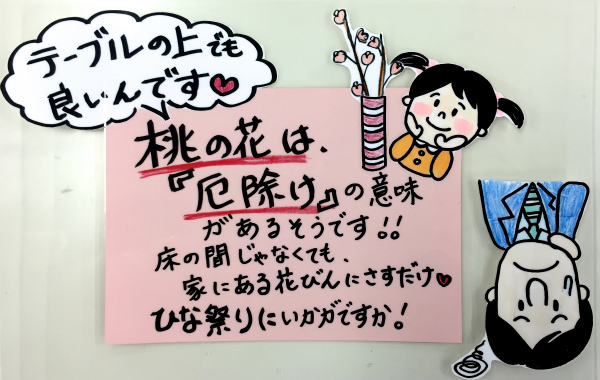 テーブルの上でも
良いんです♥
桃の花は、
『厄除け』の意味
があるそうです!!
床の間じゃなくても、
家にある花びんにさすだけ♥
ひな祭りにいかがですか!